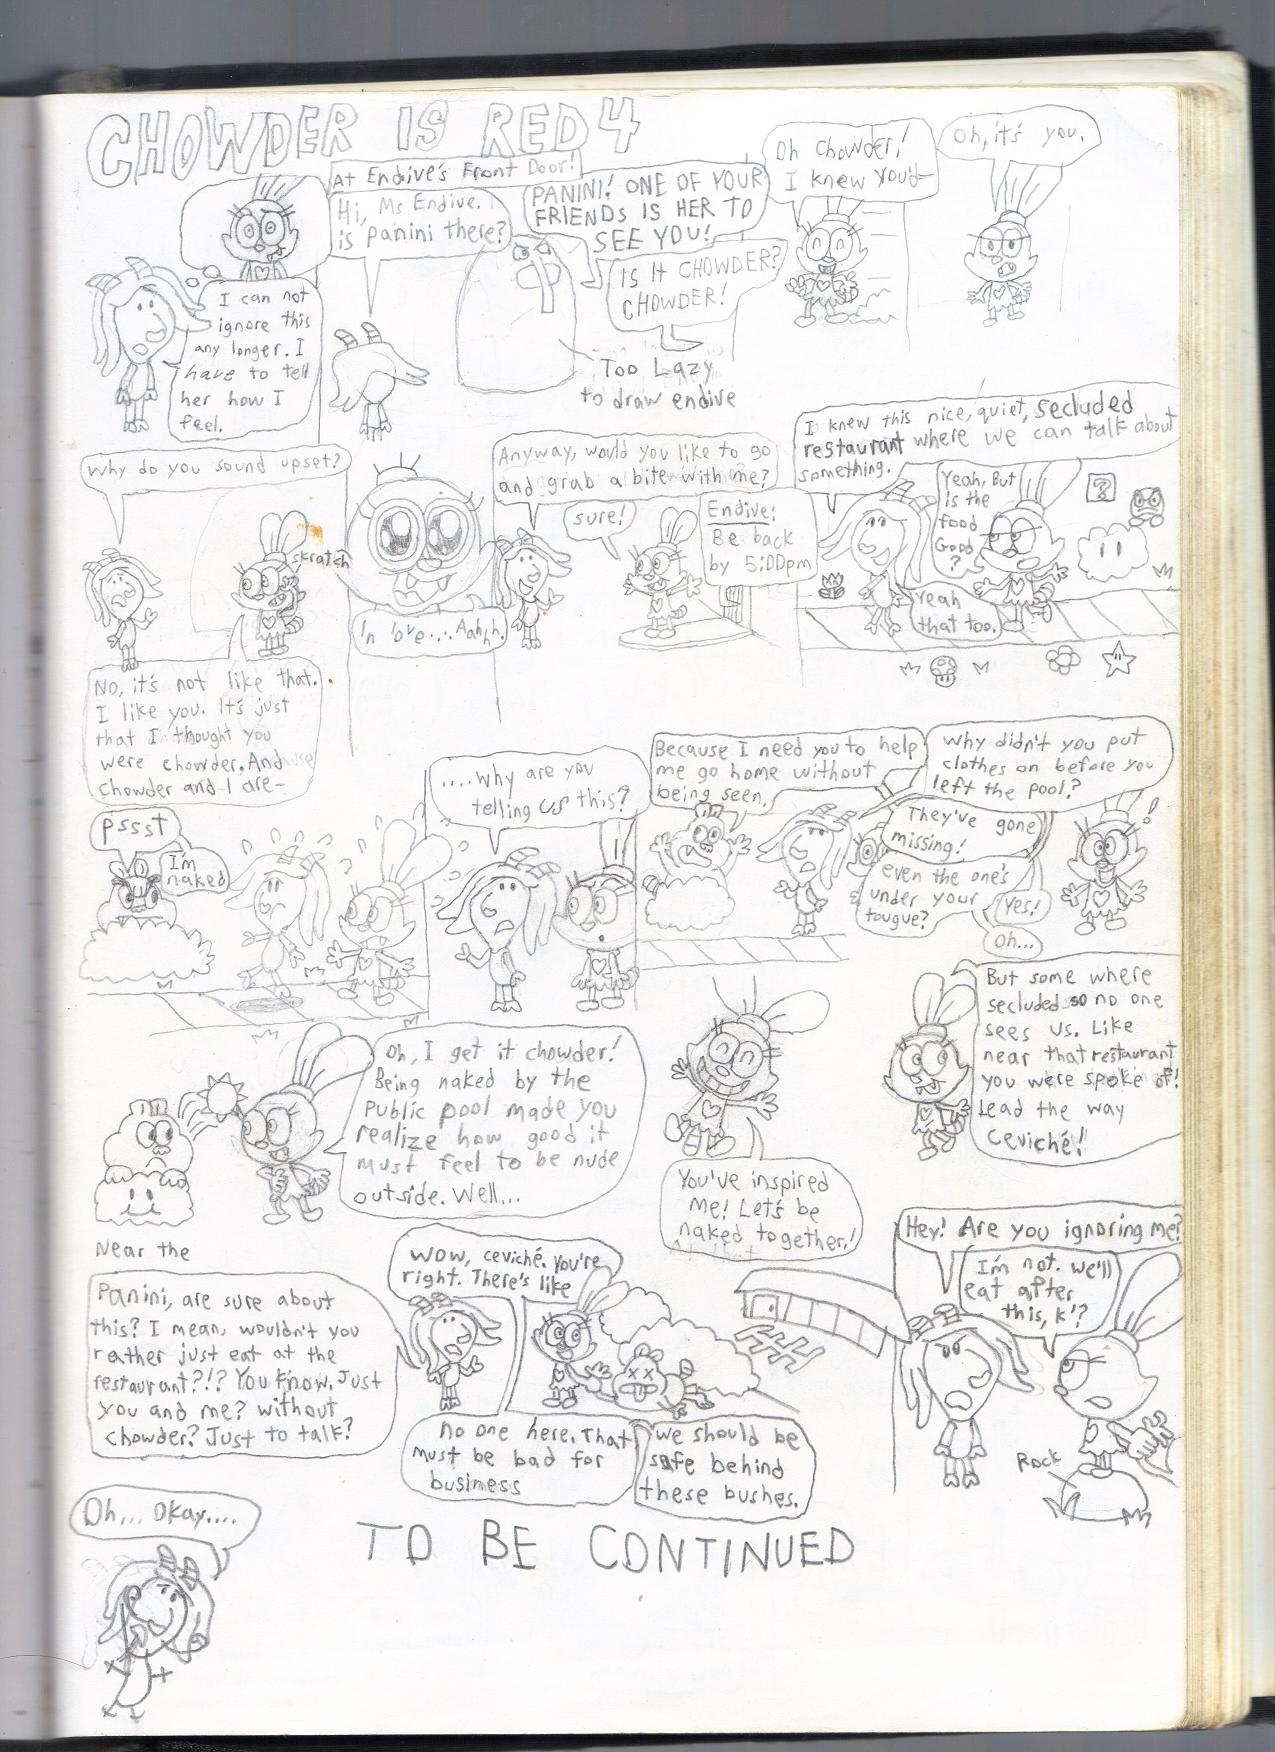 CHOWDER IS RED 4
I can not
ignore this
any longer. I
have to tell
her how I
feel.
At Endive's Front Door!
Hi, Ms Endive.
is panini there?
PANINI! ONE OF YOUR
FRIENDS IS HER TO
SEE YOU!
IS It CHOWDER?
CHOWDER!
Too Lazy
to draw endive
Oh chowder!
I knew you'd-
Oh, it's you.
Why do you sound upset?
skratch
No, it's not like that.
I like you. It's just
that I thought you
were chowder. And
chowder and I are-
In love.... Aahhh.
Anyway, would you like to go
and grab a bite with me?
sure!
Endive:
Be back
by 5:00pm
I knew this nice, quiet, secluded
restaurant where we can talk about
something.
Yeah, But
is the
food
Good
?
Yeah
that too.
?
pssst
I'm
naked
....Why are you
telling us this?
Because I need you to help
me go home without
being seen.
Why didn't you put
clothes on before you
left the pool?
They've gone
missing!
even the one's
under your
tougue?
Yes!
Oh...
!
Oh, I get it chowder!
Being naked by the
Public pool made you
realize how good it
must feel to be nude
outside. Well...
You've inspired
me! Let's be
naked together!
But some where
secluded so no one
sees us. Like
near that restaurant
you were spoke of!
Lead the way
Ceviché!
Near the
Panini, are sure about
this? I mean, wouldn't you
rather just eat at the
restaurant?!? You know, Just
you and me? without
chowder? Just to talk?
Wow, ceviché. You're
right. There's like
no one here. That
must be bad for
business
we should be
safe behind
these bushes.
Hey! Are you ignoring me?
I'm not. we'll
eat after
this, k'?
Rock
Oh... Okay....
TO BE CONTINUED